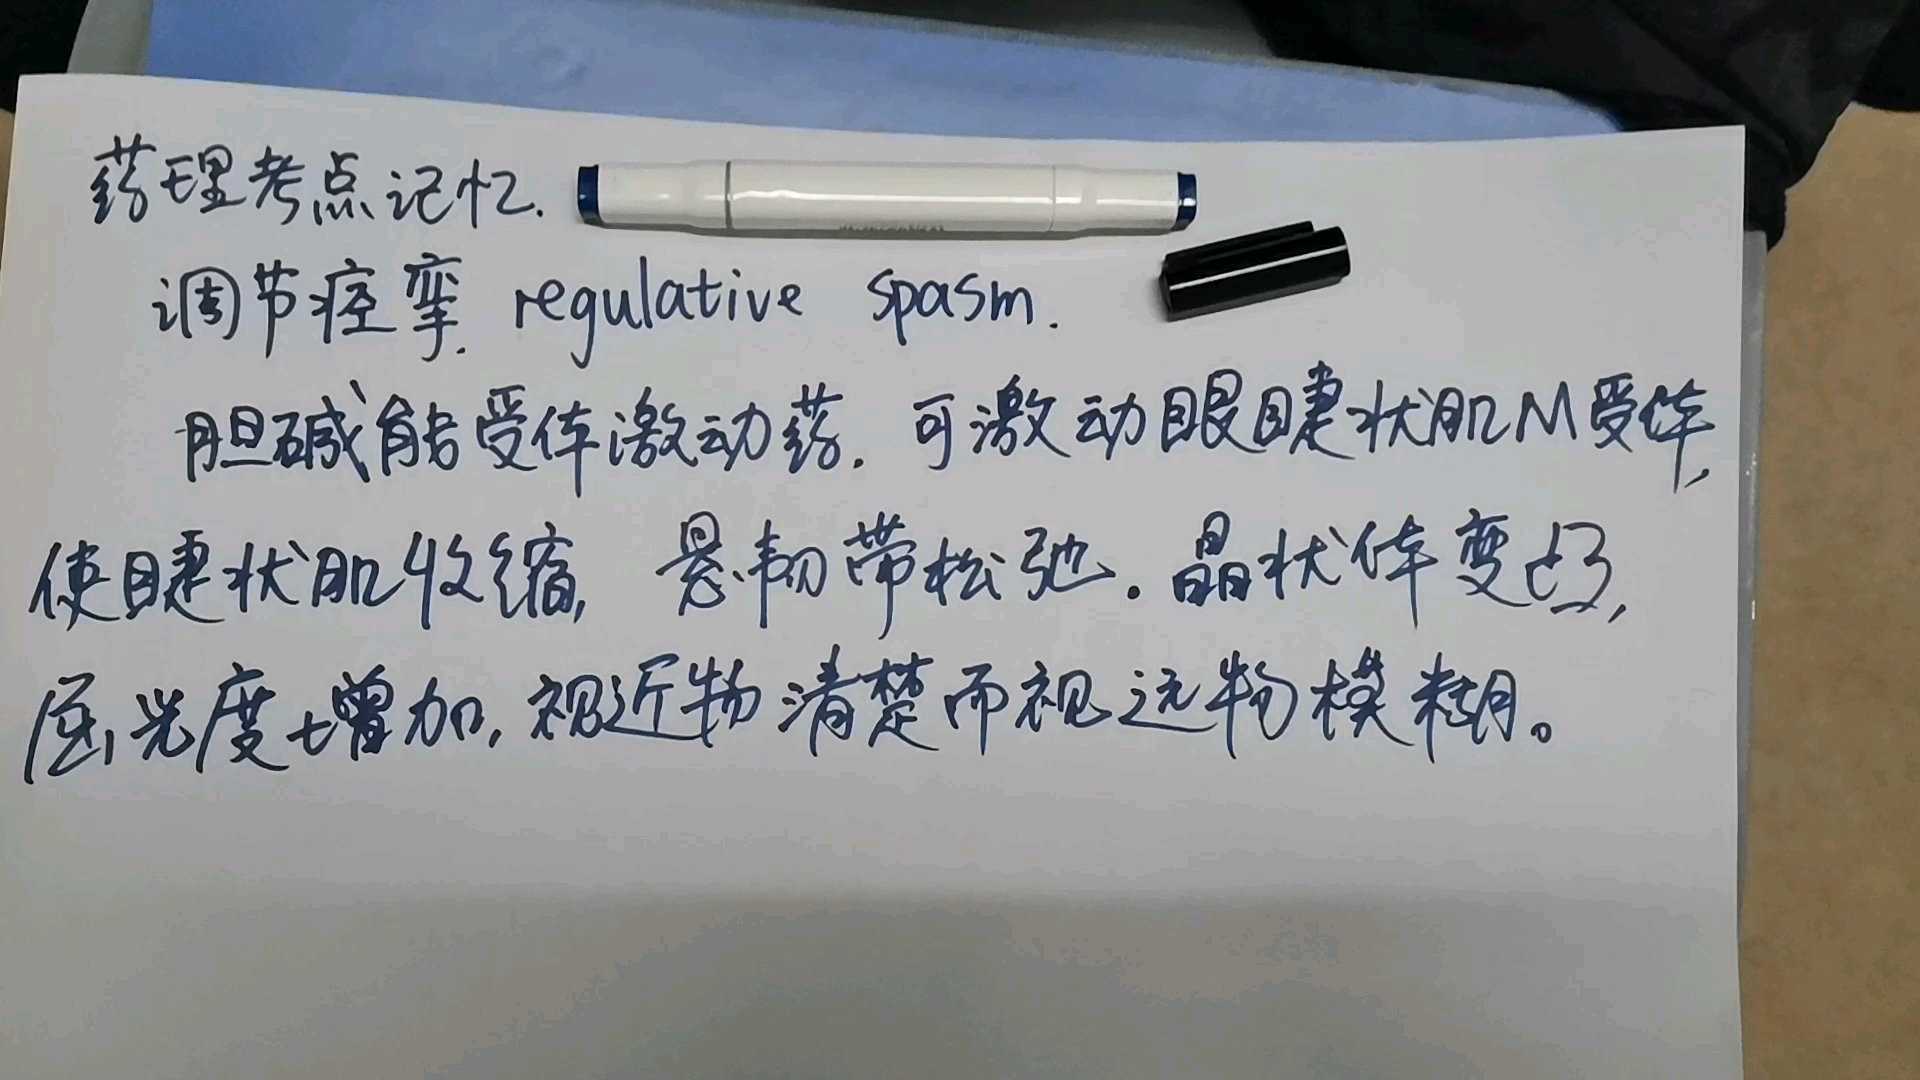 药理考点记忆.
调节痉挛. regulative spasm.
胆碱能受体激动药. 可激动眼睫状肌M受体,
使睫状肌收缩, 悬韧带松弛. 晶状体变凸,
屈光度增加, 视近物清楚而视远物模糊。